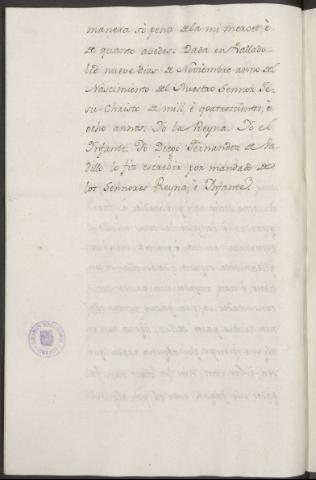 manera só pena de la mi mercet, è
de quanto avedes. Dada en Vallado-
lid nueve dias de Noviembre anno del
Nascimiento del Nuestro Sennor Je-
su-Christo de mill è quatrocientos, è
ocho annos. Yo la Reyna. Yo el
Infante. Yo Diego Fernandez de Va-
dillo lo fiz escrebir por mandado de
los Sennores Reyna, è Infante.